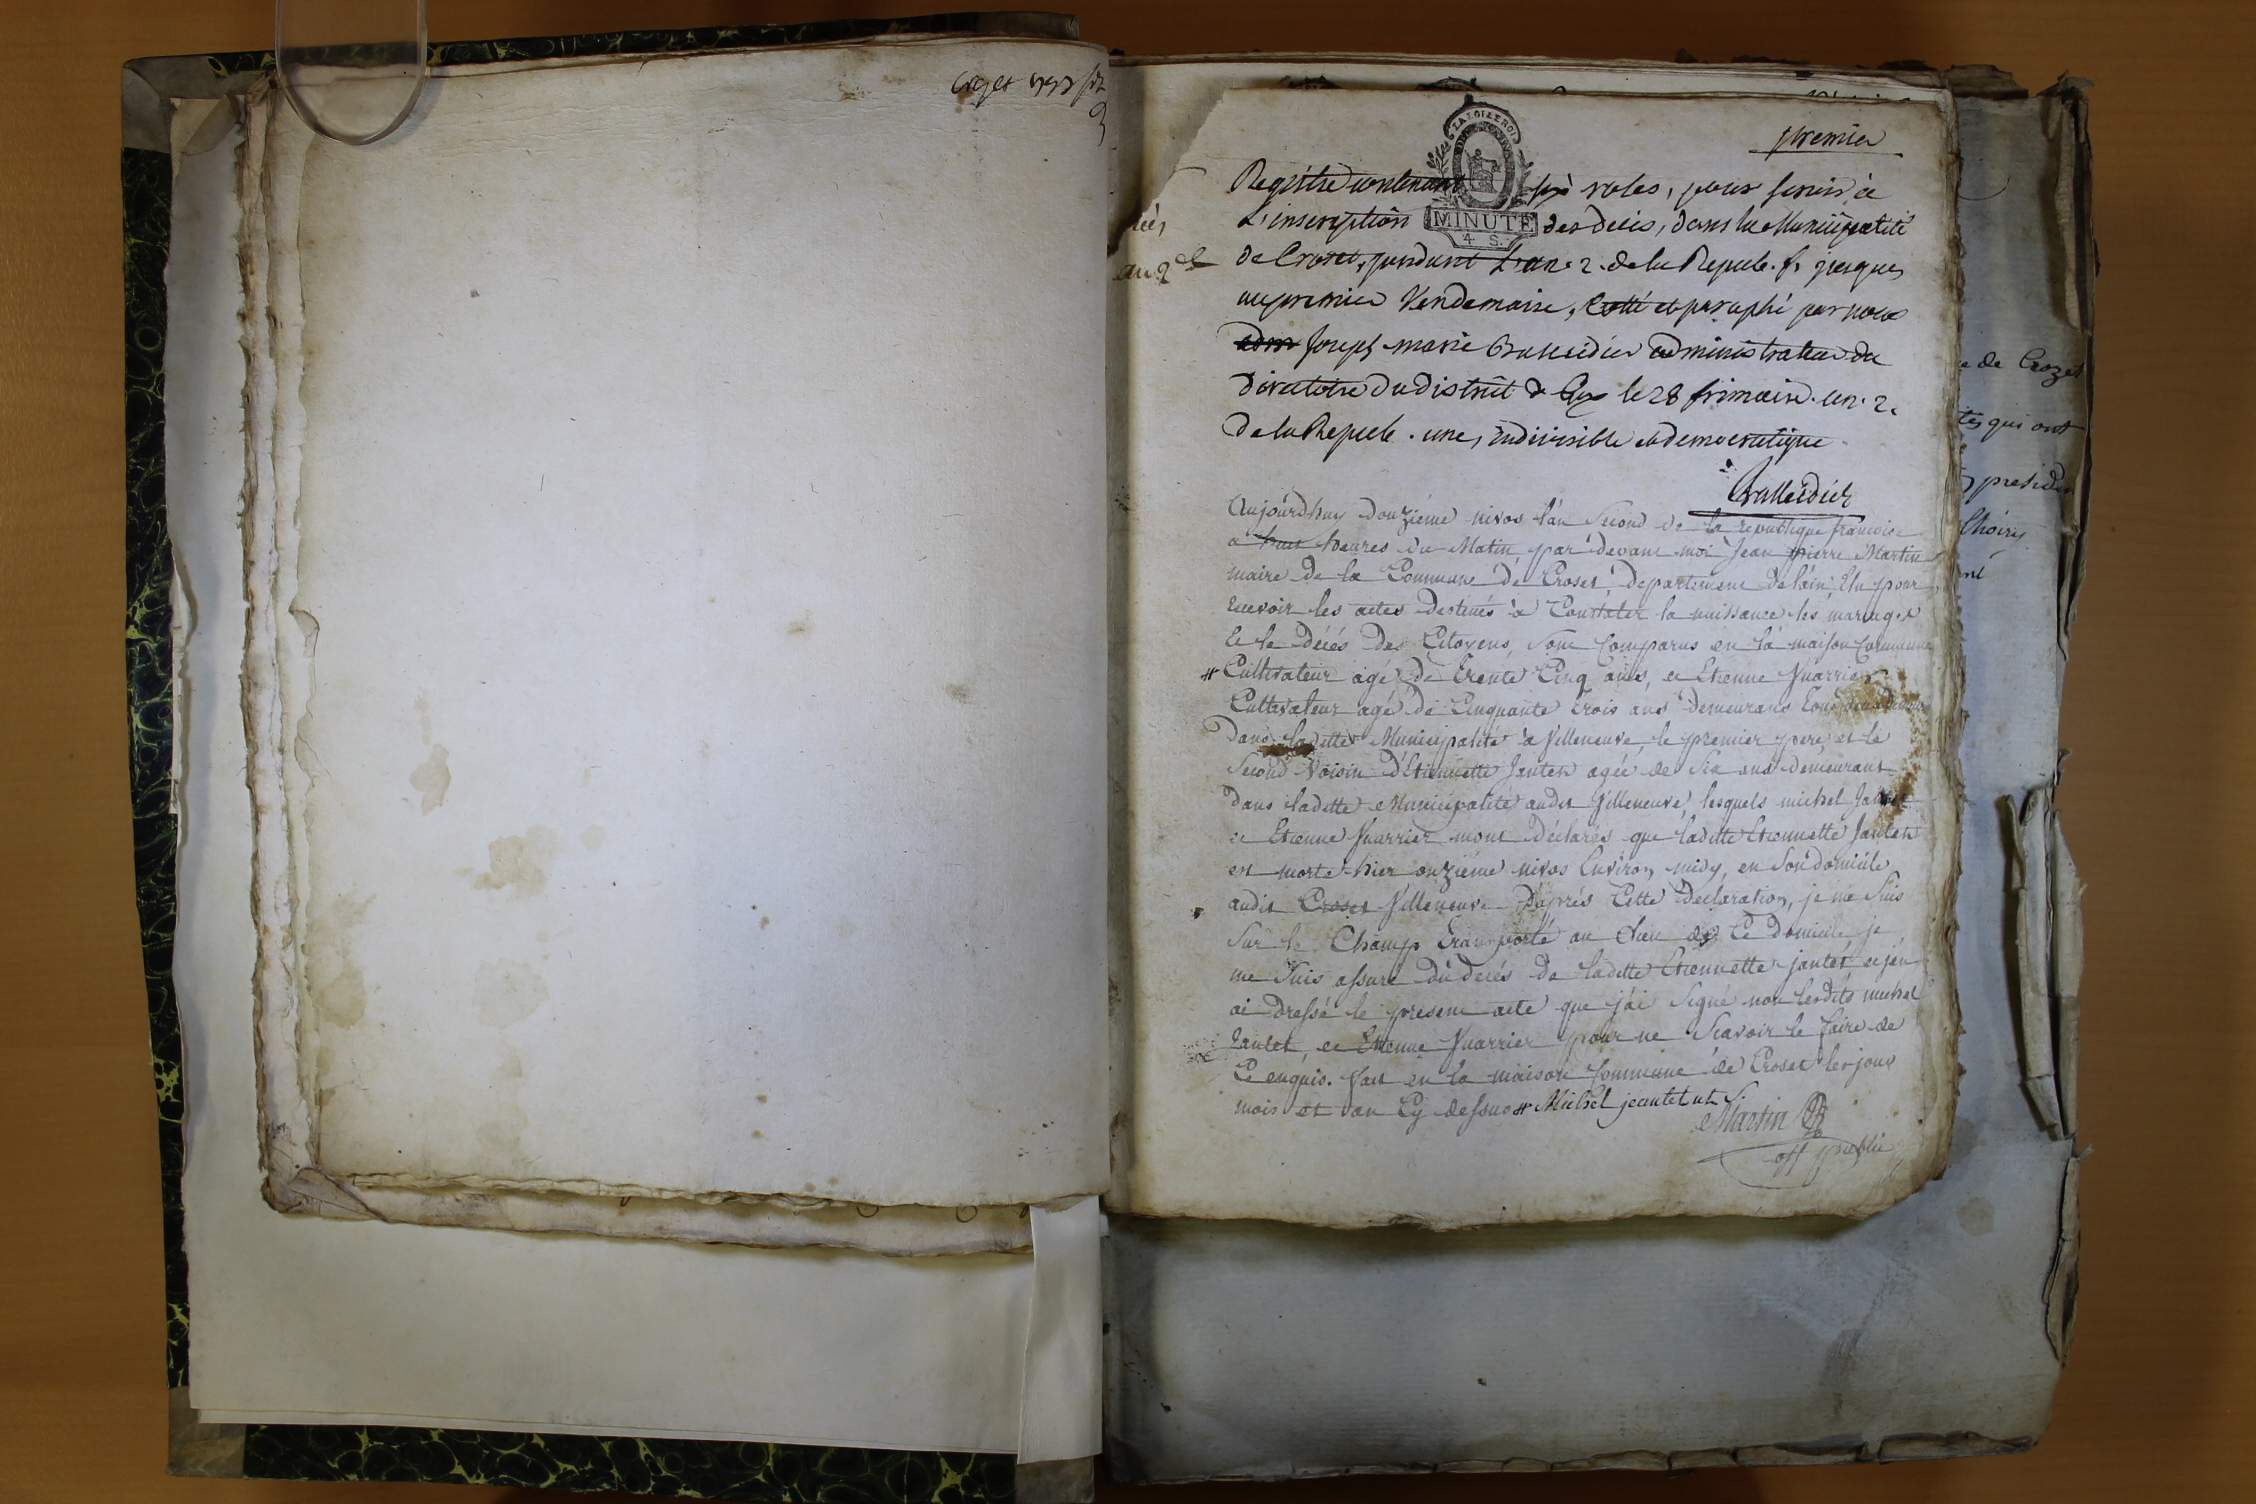 premier
Registre contenant six roles, pour servir à
L'inscription des decés, dans la Municipalité
de Croset, pendant L'an 2. de la Repub. f. jusques
au premier Vendemaire, Cotté et paraphé par nous
Joseph marie administrateur du
Directoire du district de Gex le 28 frimaire. an. 2.
de la Repub. une, indivisible et democratique
LA LOI LE ROI
MINUTE
4 S.
Aujourd'huy douzième nivos l'an Second de la republique francoise
a huit heures du Matin par devant moi Jean pierre Martin
maire de la Commune de Croset, departement de l'ain, Elu pour
recevoir les actes destinés à Constater la naissance les mariages
Et le décés des Citoyens, Sont Comparus en la maison Commune
# Cultivateur agé de Trente Cinq ans, et Etienne Juarrier
Cultivateur agé de Cinquante trois ans demeurans tous deux
Dans ladette Municipalité à Villeneuve, le premier pere, et le
Second Voisin d'Etiennette Jantet agée de Six ans demeurant
dans ladette Municipalité audit Villeneuve, lesquels michel Jantet
et Etienne Juarrier mont déclarés que ladette Etiennette Jantet
est morte hier onzieme nivos Environ midy, en Son domicile
audit Croset Villeneuve D'aprés Cette declaration, je me Suis
Sur le Champ transporté au lieu de Ce domicile je
me Suis assuré du decés de ladette Etiennette jantet et j'en
ai dressé le present acte que j'ai Signé non lesdits michel
Jantet, et Etienne Juarrier pour ne Scavoir le faire de
Ce enquis. fait en la maison Commune de Croset les jour
mois et an Cy dessus # Michel jeantet
Martin
off public
de Crozet
qui ont
presiden